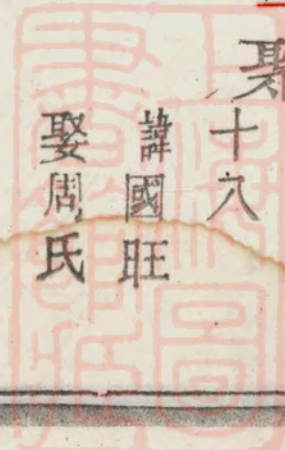 十八
諱國旺
娶周氏